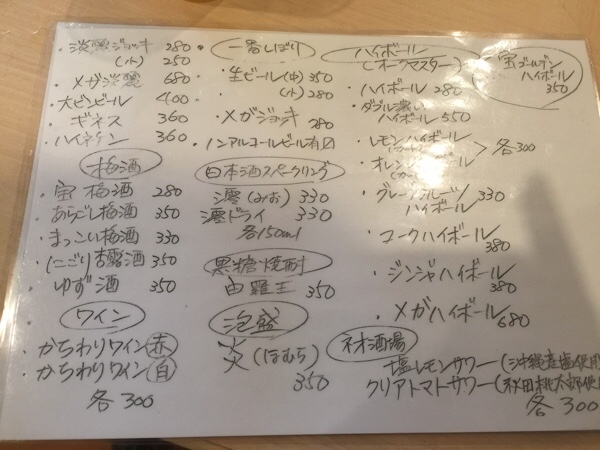 ・淡麗ジョッキ 280
(小) 250
・メガ淡麗 680
・大ビンビール 400
・ギネス 360
・ハイネケン 360
梅酒
・宝 梅酒 280
・あらごし梅酒 350
・まっこい梅酒 330
・にごり杏露酒 350
・ゆず酒 350
ワイン
・かちわりワイン 赤
・かちわりワイン 白
各300
一番しぼり
・生ビール(中) 350
(小) 280
・メガジョッキ 280
・ノンアルコールビール有
日本酒スパークリング
澪(みお) 330
澪ドライ 330
各150ml
黒糖焼酎
由羅王 350
泡盛
炎(ほむら)
350
ハイボール
(オークマスター)
・ハイボール 280
・ダブル濃い
ハイボール 550
・レモンハイボール
・オレンジハイボール
各300
・グレープフルーツ 330
ハイボール
・コークハイボール
380
・ジンジャハイボール
380
・メガハイボール
680
宝ゴールデン
ハイボール
350
ネオ酒場
塩レモンサワー(沖縄産塩使用
クリアトマトサワー(秋田桃太郎使
各300